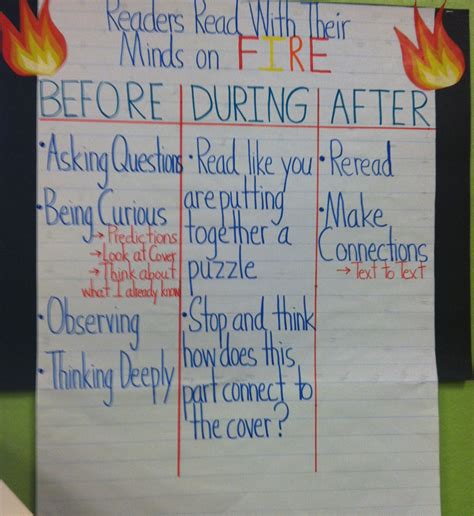 Readers Read With Their
Minds on FIRE
BEFORE
•Asking Questions
•Being Curious
→Predictions
→Look at Cover
→Think about
what I already know
•Observing
•Thinking Deeply
DURING
•Read like you
are putting
together a
puzzle
•Stop and think
how does this
part connect to
the cover?
AFTER
•Reread
•Make
Connections
→Text to Text